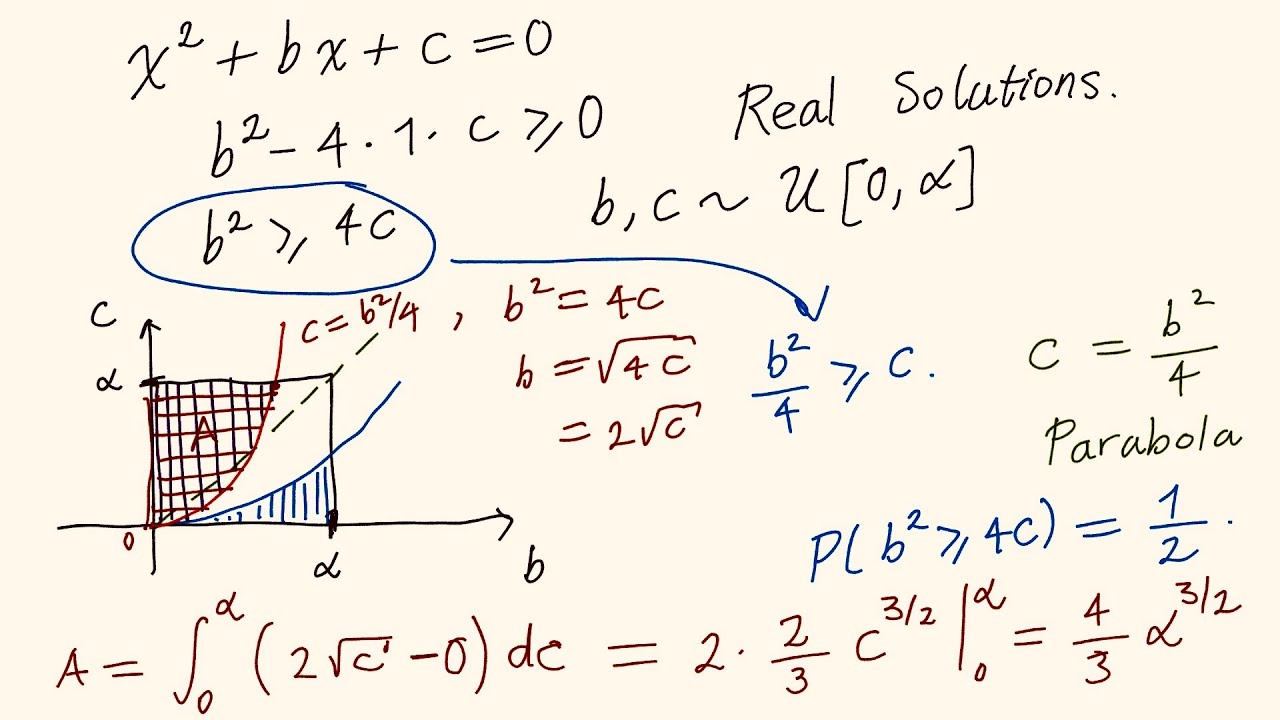 x² + bx + c = 0
b² - 4 · 1 · c ⩾ 0
Real Solutions.
b² ⩾ 4c
b, c ~ U[0, α]
c
α
c = b²/4 , b² = 4c
b = √4c
= 2√c
b²/4 ⩾ c.
c = b²/4
Parabola
A
0
α
b
P(b² ⩾ 4c) = 1/2.
A = ∫₀^α (2√c - 0) dc = 2 · 2/3 c^3/2 |₀^α = 4/3 α^3/2